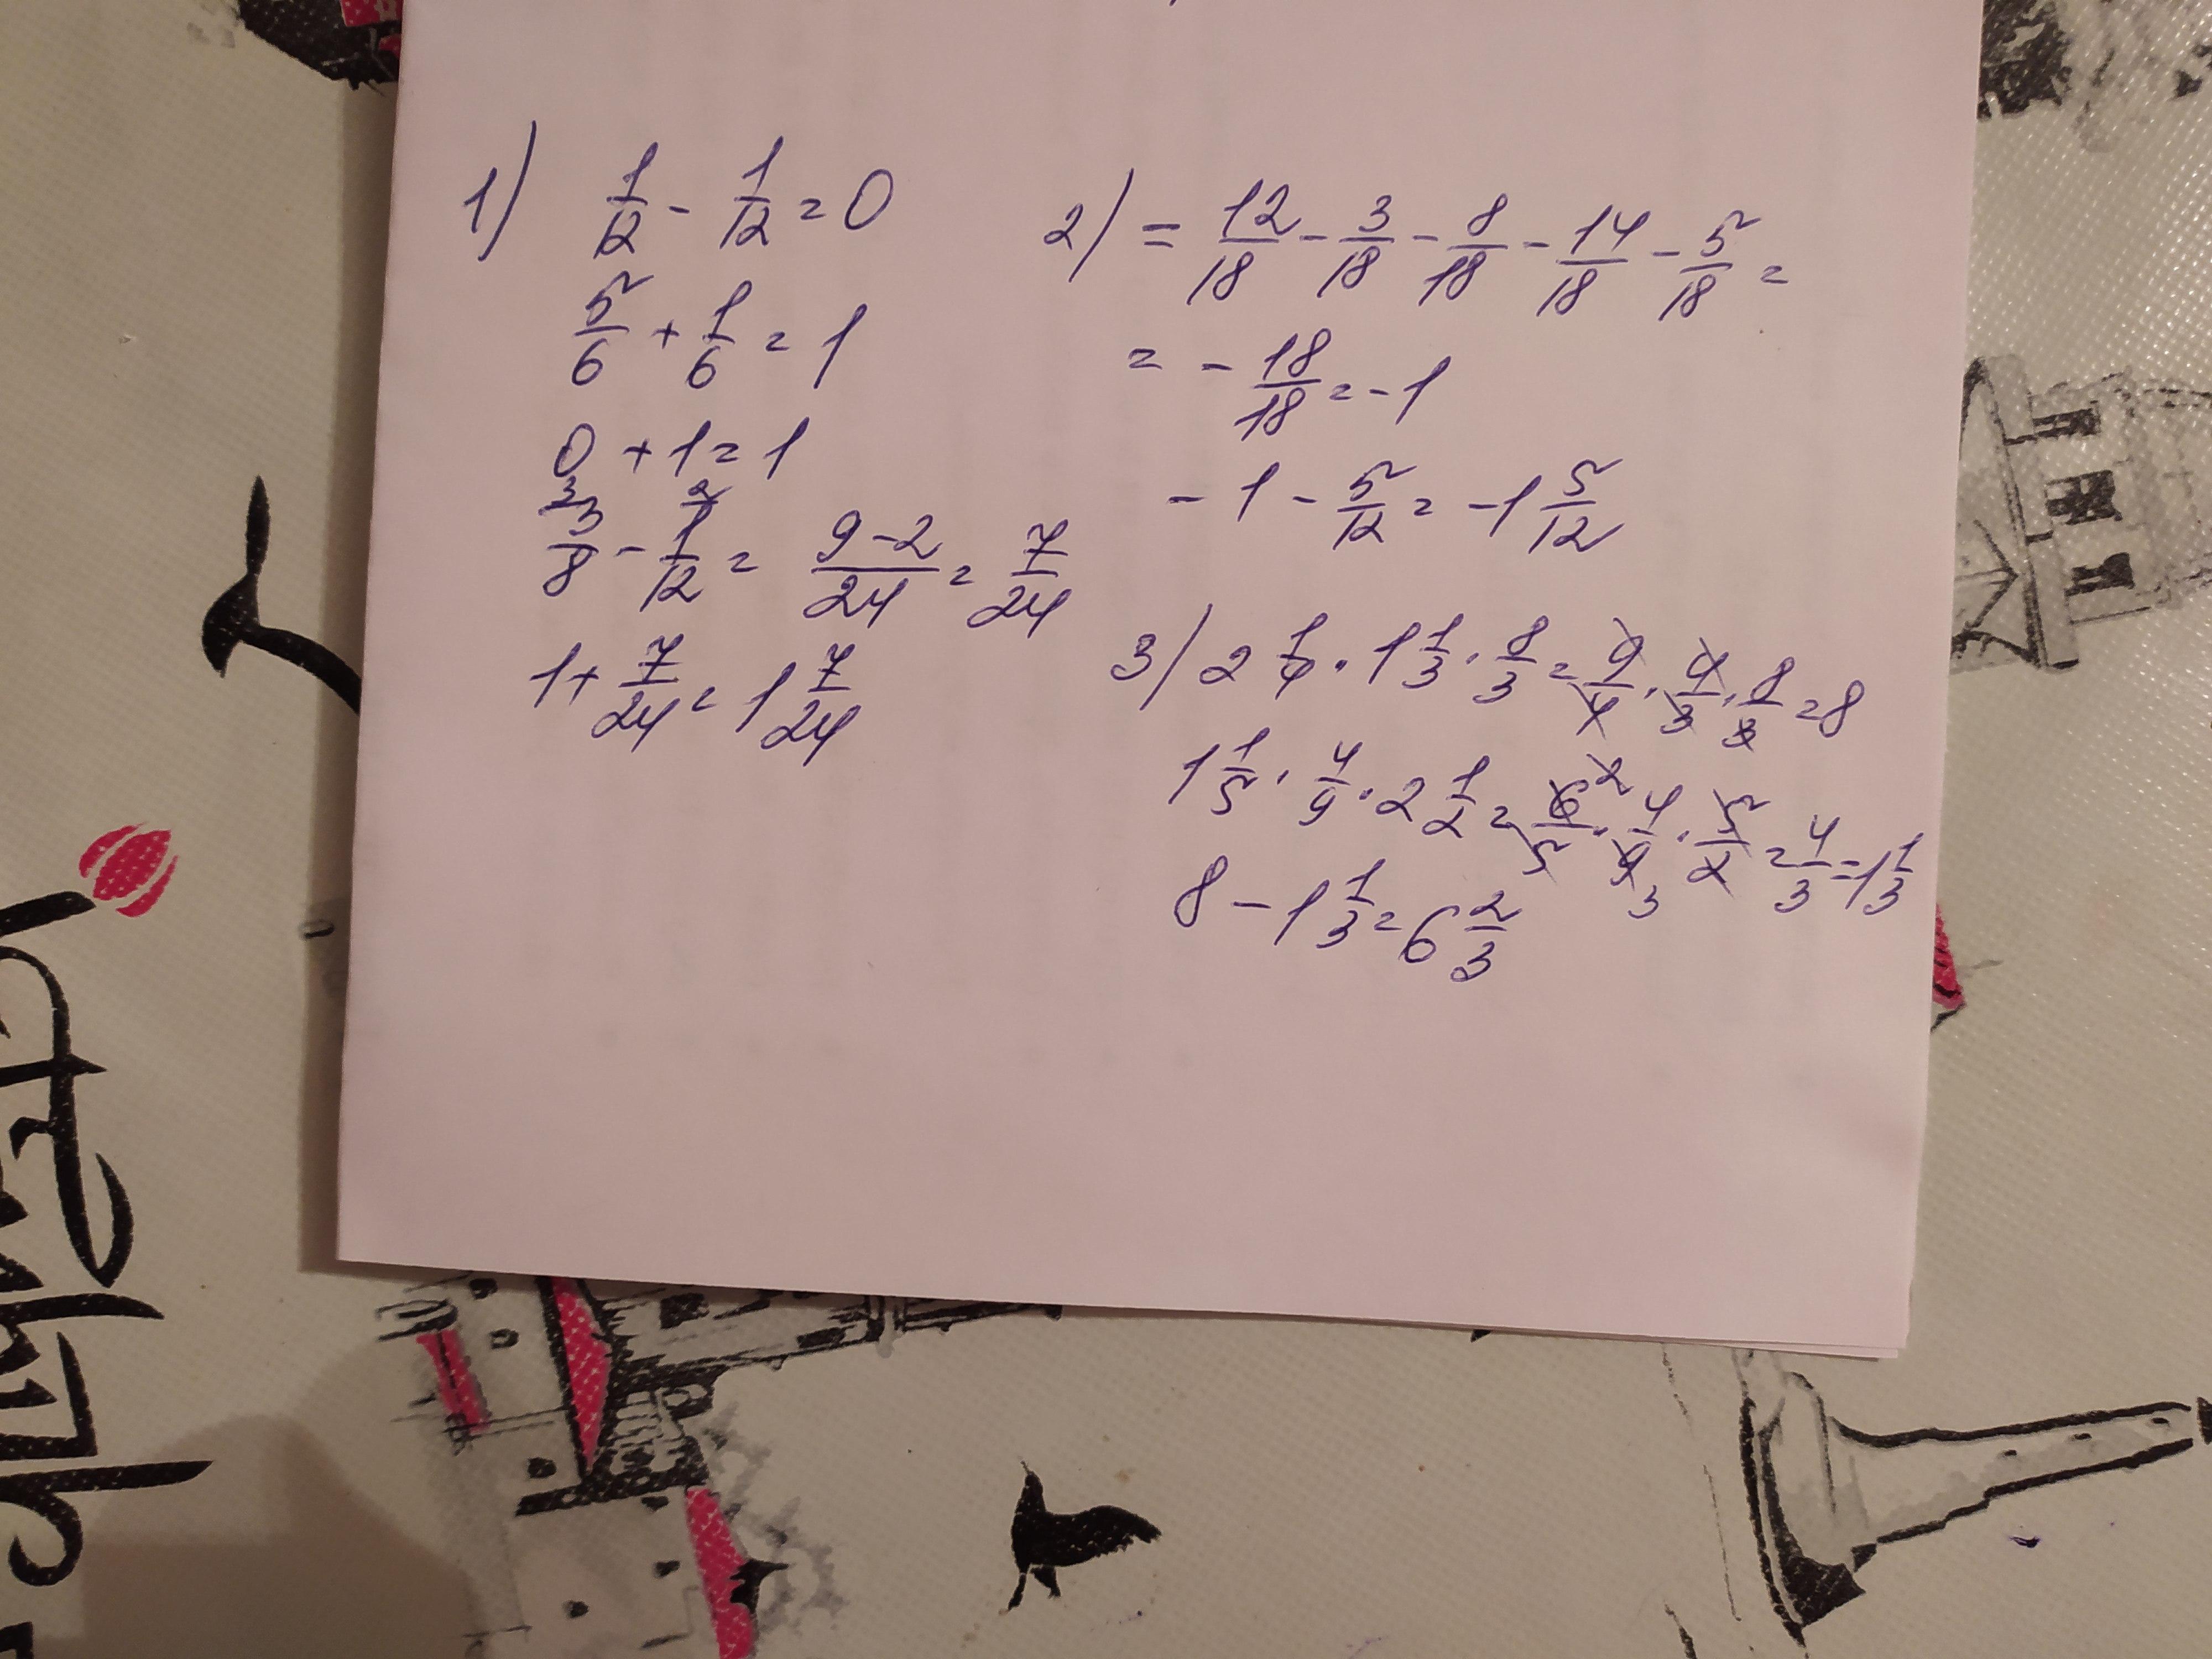 1) 1/12 - 1/12 = 0
5/6 + 1/6 = 1
0 + 1 = 1
3/8 - 1/12 = (9-2)/24 = 7/24
1 + 7/24 = 1 7/24
2) = 12/18 - 3/18 - 8/18 - 14/18 - 5/18 =
= - 18/18 = -1
- 1 - 5/12 = -1 5/12
3) 2 1/4 · 1 1/3 · 8/3 = 9/4 · 4/3 · 8/3 = 8
1 1/5 · 4/9 · 2 1/2 = 6/5 · 4/9 · 5/2 = 4/3 = 1 1/3
8 - 1 1/3 = 6 2/3